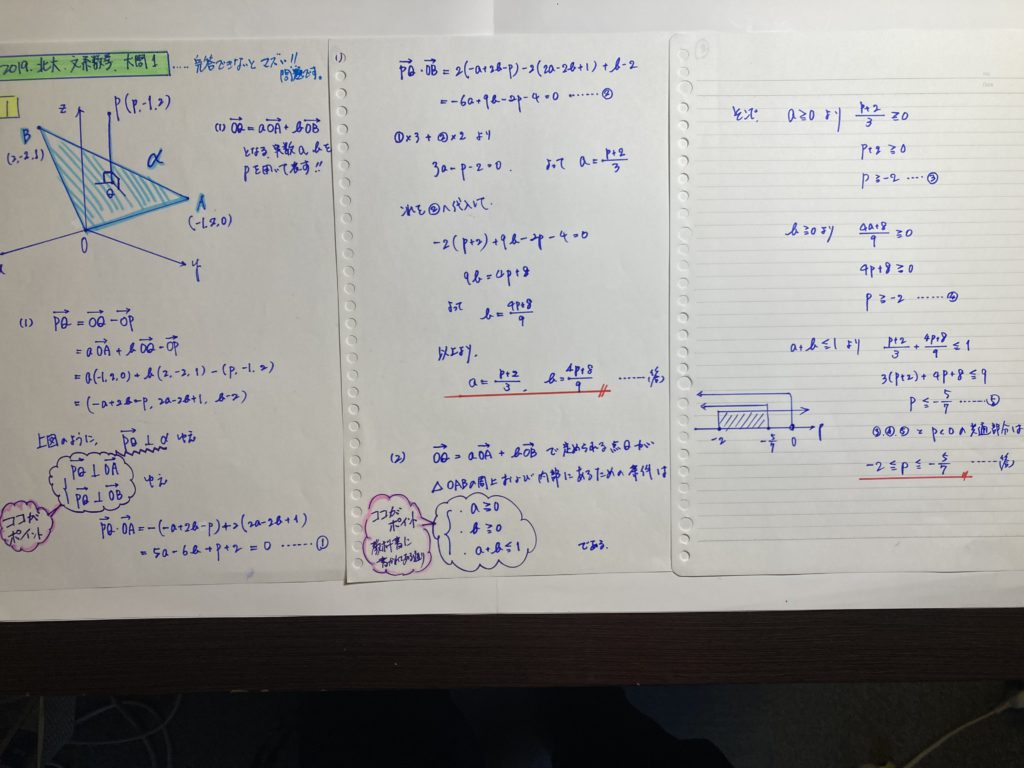 2019. 北大. 文系数学. 大問1 ..... 完答できないとマズい!!
問題です。
1
z
P(p,-1,2)
B
(2,-2,1)
α
Q
A
(-1,2,0)
O
x
y
(1) OQ = aOA + bOB
となる実数a,bを
pを用いて表す!!
(1) PQ = OQ - OP
= aOA + bOB - OP
= a(-1,2,0) + b(2,-2,1) - (p,-1,2)
= (-a+2b-p, 2a-2b+1, b-2)
上図のように, PQ ⊥ α ゆえ
PQ ⊥ OA
PQ ⊥ OB
ゆえ
ココが
ポイント
PQ・OA = -(-a+2b-p)+2(2a-2b+1)
= 5a-6b+p+2 = 0 ...... ①
PQ・OB = 2(-a+2b-p)-2(2a-2b+1)+b-2
= -6a+9b-2p-4=0 ...... ②
①×3+②×2 より
3a-p-2=0. よって a=p+2/3
これを②へ代入して.
-2(p+2)+9b-2p-4=0
9b=4p+8
よって b=4p+8/9
以上より.
a=p+2/3, b=4p+8/9 ......(答)
(2) OQ = aOA + bOB で定められる点Qが
△OABの周上および内部にあるための条件は
・a≧0
・b≧0
・a+b≦1
である.
ココが
ポイント
教科書に
書かれてある通り
そこで a≧0より p+2/3 ≧0
p+2≧0
p≧-2 .... ③
b≧0より 4p+8/9 ≧0
4p+8≧0
p≧-2 ...... ④
a+b≦1より p+2/3 + 4p+8/9 ≦1
3(p+2)+4p+8≦9
p≦-5/7 ...... ⑤
-2 -5/7 0 p
③,④,⑤とp<0の共通部分は
-2≦p≦-5/7 ......(答)